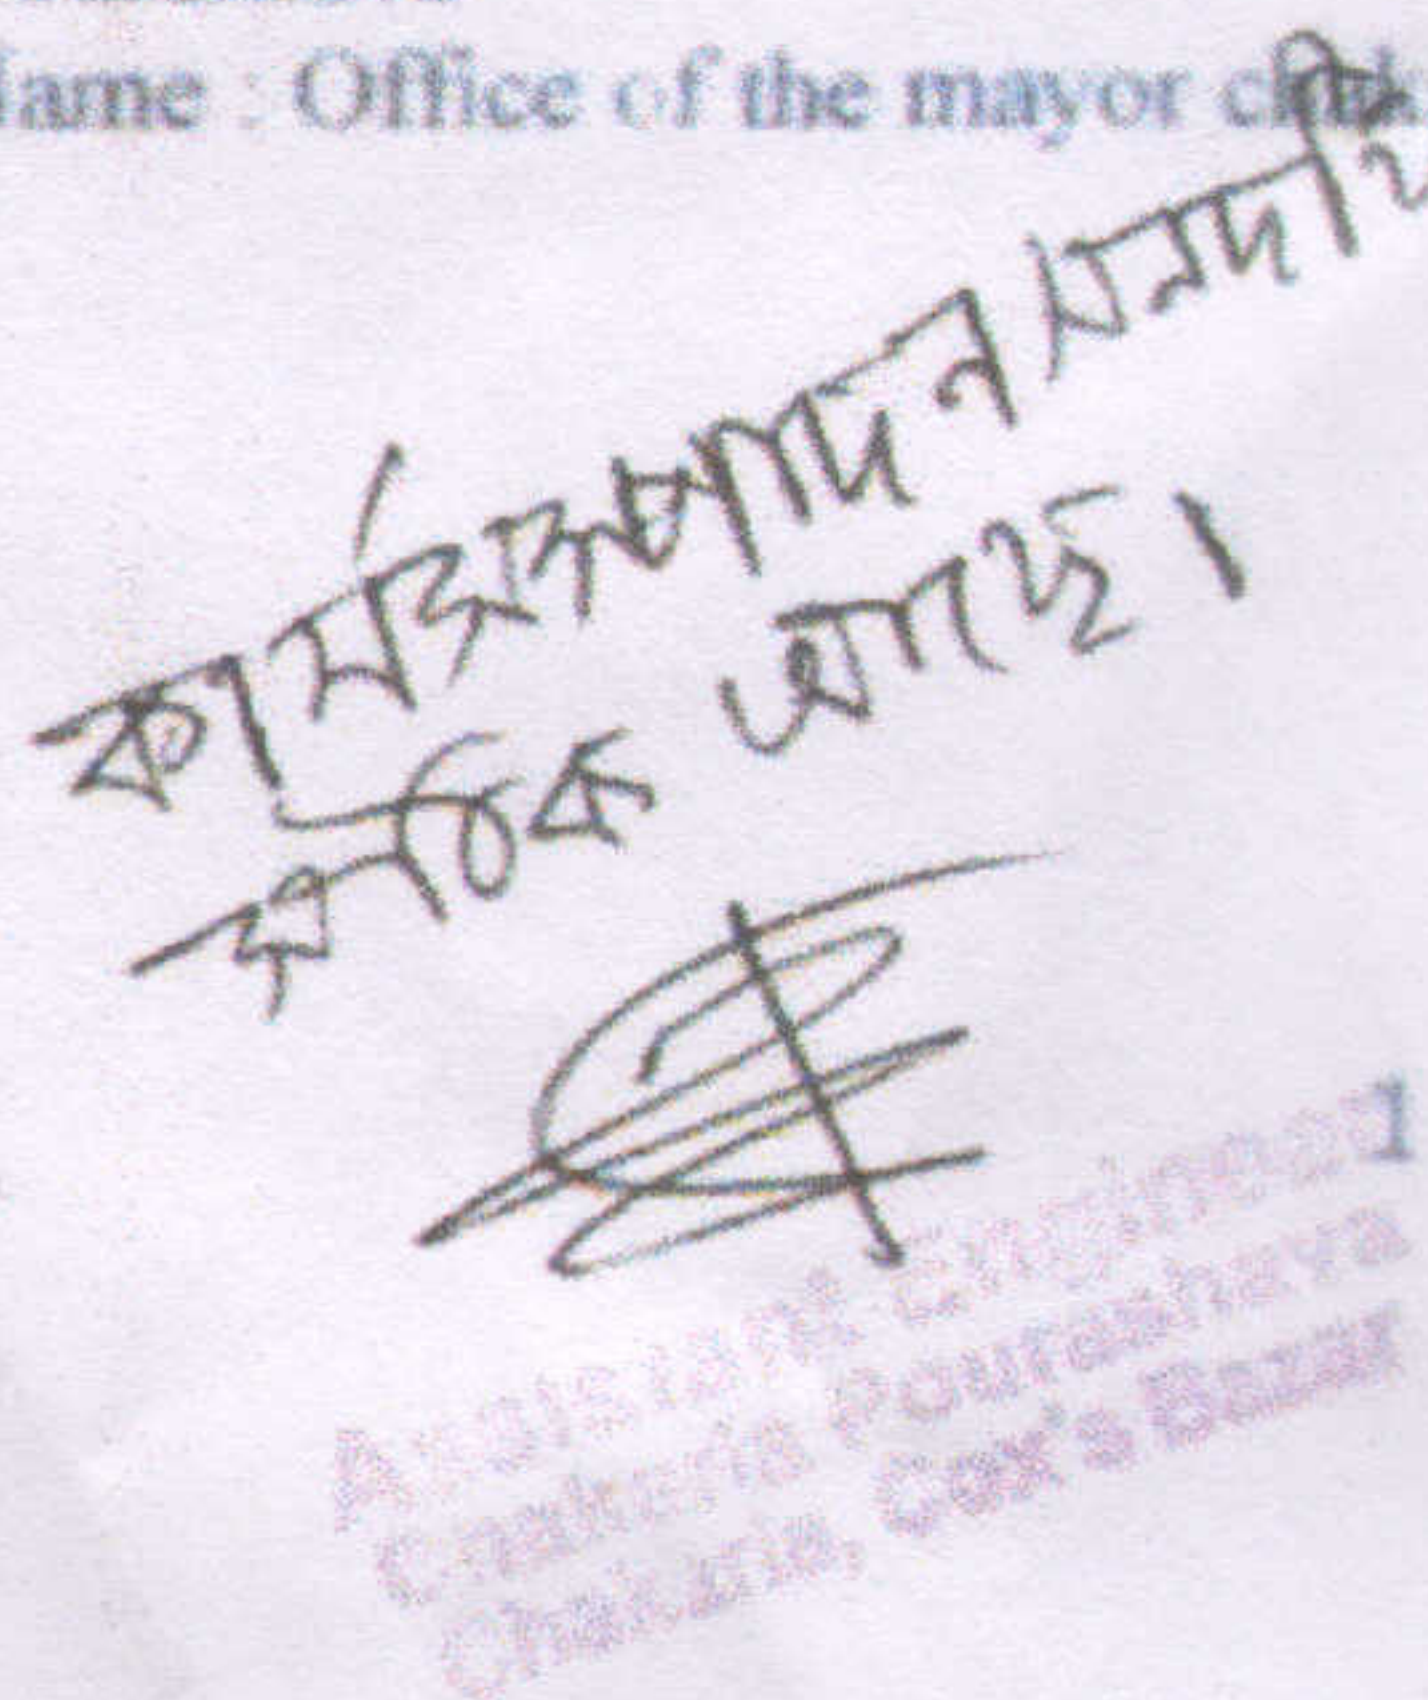 ame : Office of the mayor chak
কার্যসম্পাদন সনদটি
সঠিক আছে।
1
Assistant Engineer
Chakaria Pourashava
Chakaria, Cox's Bazar